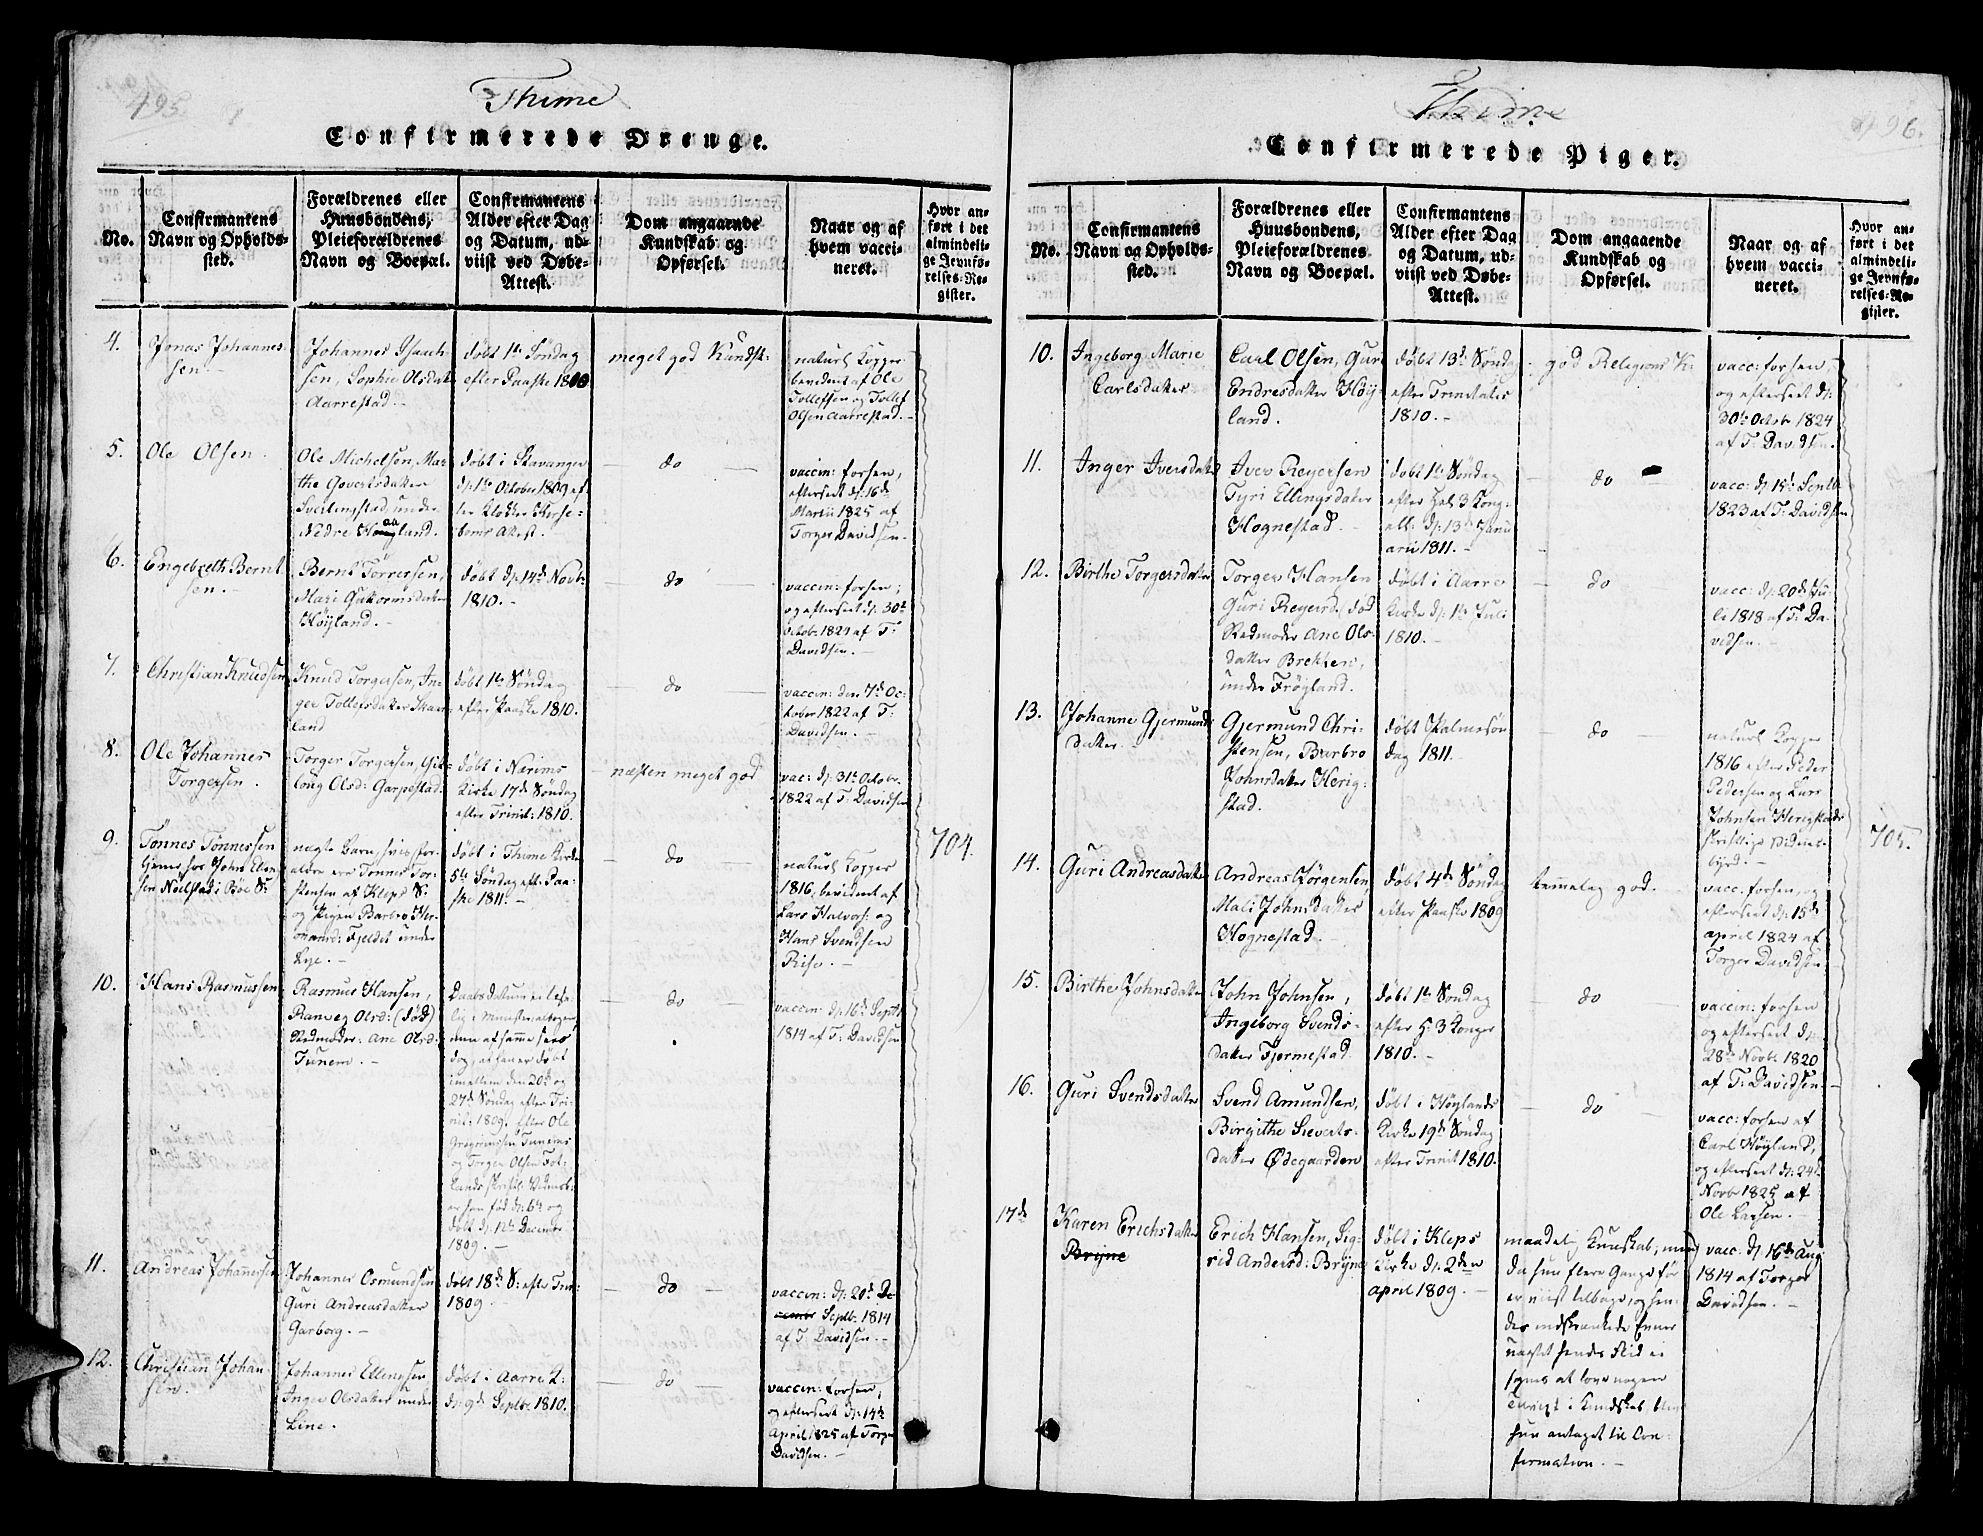 495.
Thime
Confirmerede Drenge.
No.
Confirmantens
Navn og Opholds-
sted.
Forældrenes eller
Huusbondens,
Pleieforældrenes
Navn og Boepæl.
Confirmantens
Alder efter Dag
og Datum, ud-
viist ved Døbe-
Attest.
Dom angaaende
Kundskab og
Opførsel.
Naar og af
hvem vacci-
neret.
Hvor an-
ført i det
almindeli-
ge Jevnfø-
relses-Re-
gister.
4.
Jonas Johannes
sen.
Johannes Isaach
sen, Sophie Olsdatt
Aarrestad.
døbt 1te Søndag
efter Paaske 1810
meget god Kundsk.
naturl Kopper
bevidnet af Ole
Tollefsen og Tollef
Olsen Aarrestad.
5.
Ole Olsen.
Ole Michelsen, Mar
the Govertsdatter
Svertingstad, under
Nedre Haugland.
døbt i Stavanger
d: 1te October 1809 ef-
ter Klokker Kirse-
boms Attest.
do
vaccin: forsen,
efterseet d: 16de
Martii 1825 af
Torger Davidsen.
6.
Engebreth Bernt
sen.
Bernt Torrersen,
Mari Guttormsdatter
Høyland.
døbt d: 14de Novbr
1810.
do
vaccin: forsen,
og efterseet d: 30te
Octob: 1824 af T:
Davidsen.
7.
Christian Knudsen
Knud Torgersen, In
ger Tollefsdatter Skan
land
døbt 1te Søndag
efter Paaske 1810.
do
vaccin: den 7de Oc:
tober 1822 af T:
Davidsen.
8.
Ole Johannes
Torgersen.
Torger Torgersen, Git-
loug Olsd: Garpestad.
døbt i Nærims
Kirke 17de Søndag
efter Trinit: 1810.
næsten meget god
vac: d: 31te Octobr
1822 af T: Davidsen
9.
Tønnes Tønnessen
tjener hos John Ellen
sen Nœlstad i Bøe S:
uægte Barn, hvis for-
ældre ere Tønnes Tor-
stensen af Kleps S:
og Pigen Barbro Her-
mansd: Fjeldet under
Lye.
døbt i Thime Kirke
5te Søndag eft: Paa
ske 1811.
do
naturl Kopper
1816, bevidnet af
Lars Halvors: og
Hans Svendsen
Rise.
704.
10.
Hans Rasmussen
Rasmus Hansen,
Ranveg Olsd: (død)
Stedmoder: Ane Olsd:
Tunem.
Daabsdatum er
af samme sees
dog, at han er døbt
imellem den 20de og
27de Søndag efter Tri-
nit: 1809. efter Ole
Gregoriussen Tunems
og Torger Olsen Fot-
lands skriftl Vidnesb:
er han fød d: 6te og
døbt d: 12te December
1809.
do
vaccin: d: 16de Septb
1814 af T: Davidsen
11.
Andreas Johannesen
Johannes Osmundsen
Guri Andreasdatter
Garborg.
døbt 18de S: efter Trin
1809.
do
vaccin: d: 20de De
cember Septb: 1814
af T: Davidsen.
12.
Christian Johan
sen.
Johannes Ellingsen
Inger Olsdatter under
Line.
døbt i Aarre K:
d: 9de Septbr 1810.
do
vaccin: forsen,
og efterseet d: 14de
April 1825 af Torger
Davidsen.
496.
Thime
Confirmerede Piger.
No.
Confirmantens
Navn og Opholds-
sted.
Forældrenes eller
Huusbondens,
Pleieforældrenes
Navn og Boepæl.
Confirmantens
Alder efter Dag
og Datum, ud-
viist ved Døbe-
Attest.
Dom angaaende
Kundskab og
Opførsel.
Naar og af
hvem vacci-
neret.
Hvor an-
ført i det
almindeli-
ge Jevnfø-
relses-Re-
gister.
10.
Ingeborg Marie
Carlsdatter
Carl Olsen, Guri
Endresdatter Høy-
land.
døbt 13de Søndag
efter Trinitatis
1810.
god Religions K:
vacc: forsen,
og efterseet d:
30te Octobr 1824
af T: Davidsen.
11.
Inger Iversdatter
Iver Reyersen
Tyri Ellingsdatter
Hognestad.
døbt 1te Søndag
efter Hel: 3 Kong-
all: d: 13de Janu
arii 1811.
do
vacc: d: 15de Septb
1823 af T: Davidsen
12.
Birthe Torgersdatter
Torger Hansen
Guri Reyersd (død
Stedmoder Ane Ols-
datter Brekken,
under Frøyland.
døbt i Aarre
Kirke d: 1te Juli
1810.
do
vacc: d: 20de Ju-
li 1818 af T: Da-
vidsen.
13.
Johanne Gjermunds
datter.
Gjermund Chri-
stensen, Barbro
Johnsdatter Herig-
stad.
døbt Palmesøn
dag 1811.
do
naturl Kopper
1816 efter Peder
Pedersen og Lars
Johnsen Herigstads
skriftlige Vidnes-
byrd.
705.
14.
Guri Andreasdatter
Andreas Jørgensen
Mali Johnsdatter
Hognestad.
døbt 4de Søndag
efter Paaske 1809
temmelig god.
vacc. forsen, og
efterseet d: 15de
april 1824 af
Torger Davidsen.
15.
Birthe Johnsdatter
John Johnsen,
Ingeborg Svends-
datter Fjermestad.
døbt 1te Søndag
efter H: 3 Konger
1810.
do
vaccin: forsen
og efterseet d:
28de Novbr 1820
af T: Davidsen.
16.
Guri Svendsdatter
Svend Amundsen,
Birgithe Sieverts-
datter Ødegaarden
døbt i Høylands
Kirke 19de Søndag
efter Trinit 1810.
do
vacc: forsen af
Carl Høyland,
og efterseet d: 24de
Novb 1825 af
Ole Larsen.
17de
Karen Erichsdatter
Bryne
Erich Hansen, Sig-
rid Andersd: Bryne
døbt i Kleps
Kirke d: 2den
april 1809.
maadelig Kundskab, men
da hun flere Gange før
er viist tilbage, og hen-
des indskrænkede Evner
uagtet hendes Flid ei
synes at love nogen
Tilvext i Kundskab, blev
hun antaget til Con-
firmation.
vacc. d: 16de Aug
1814 af Torger
Davidsen.